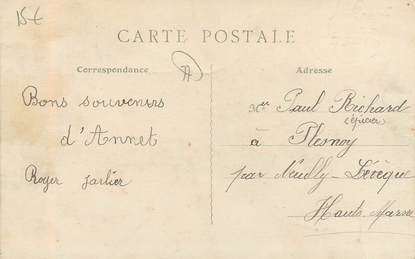 15€
CARTE POSTALE
Correspondance
Bons souvenirs
d'Annet
Roger Jarlier
Adresse
Mr Paul Richard
épicier
à Plesnoy
par Neuilly-Lévêque
Haute-Marne